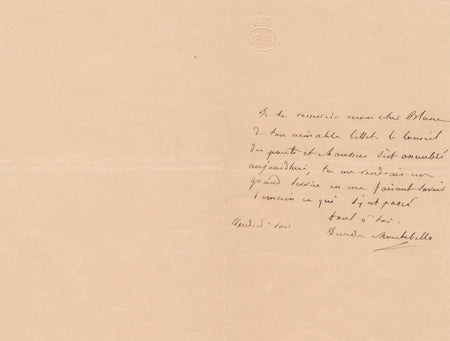 Je te remercie mon cher Blanc
de ton aimable billet. Le Conseil
des ponts et chaussées s'est assemblé
aujourdhui, tu me rendrais un
grand service en me faisant savoir
demain ce qui s'y est passé
tout à toi.
Vendredi soir
Duc de Montebello